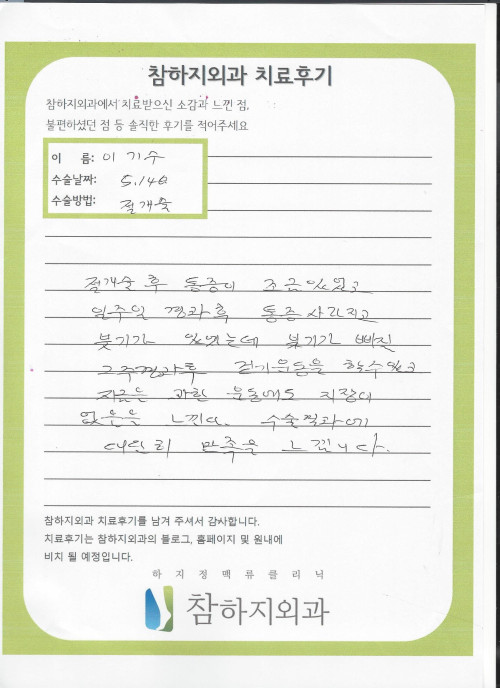 참하지외과 치료후기
참하지외과에서 치료받으신 소감과 느낀 점,
불편하셨던 점 등 솔직한 후기를 적어주세요
이 름: 이 기수
수술날짜: 5.14일
수술방법: 절개술
절개술 후 통증이 조금 있었고
일주일 경과 후 통증 사라지고
붓기가 있었는데 붓기가 빠진
2주경과후 걷기운동을 할수있고
지금은 과한 운동에도 지장이
없음을 느낀다. 수술결과에
대단히 만족을 느낍니다.
참하지외과 치료후기를 남겨 주셔서 감사합니다.
치료후기는 참하지외과의 블로그, 홈페이지 및 원내에
비치 될 예정입니다.
하지정맥류클리닉
참하지외과